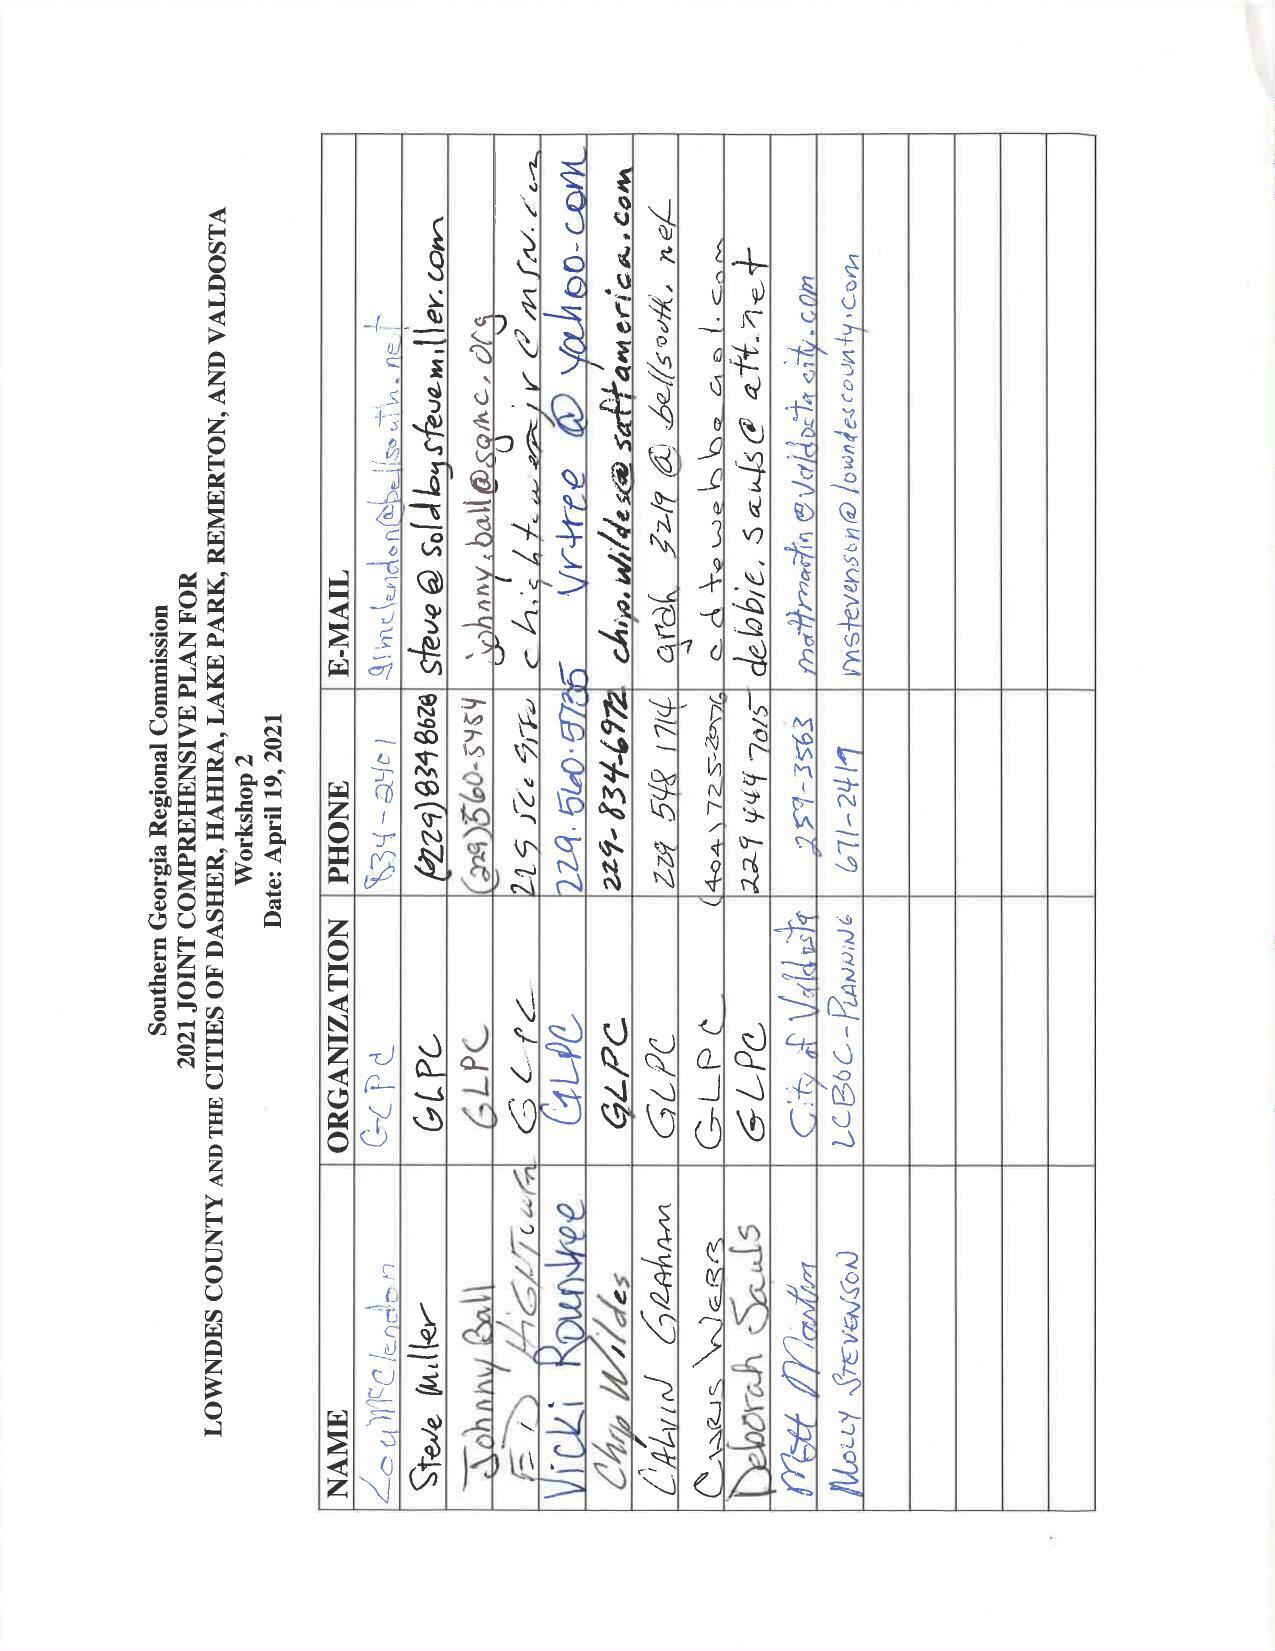 Southern Georgia Regional Commission
2021 JOINT COMPREHENSIVE PLAN FOR
LOWNDES COUNTY AND THE CITIES OF DASHER, HAHIRA, LAKE PARK, REMERTON, AND VALDOSTA
Workshop 2
Date: April 19, 2021
NAME ORGANIZATION PHONE E-MAIL
Lou McClendon GLPC 834-2401 @bellsouth.net
Steve Miller GLPC (229)8348628 steve@soldbystevemiller.com
Johnny Ball GLPC (229)560-5454 johnny.ball@sgmc.org
ED HIGHTOWER GLPC 229
Vicki Rountree GLPC 229.560.5735 vrtree@yahoo.com
Chip Wildes GLPC 229-834-6972 chip.wildes@saftamerica.com
CALVIN GRAHAM GLPC 229 548 1714 grah3219@bellsouth.net
CHRIS WEBB GLPC (404)725-2076 cdtowebb@aol.com
Deborah Sauls GLPC 229 444 7015 debbie.sauls@att.net
Matt Martin City of Valdosta 259-3563 mattmartin@valdostacity.com
MOLLY STEVENSON LCBOC-PLANNING 671-2419 mstevenson@lowndescounty.com